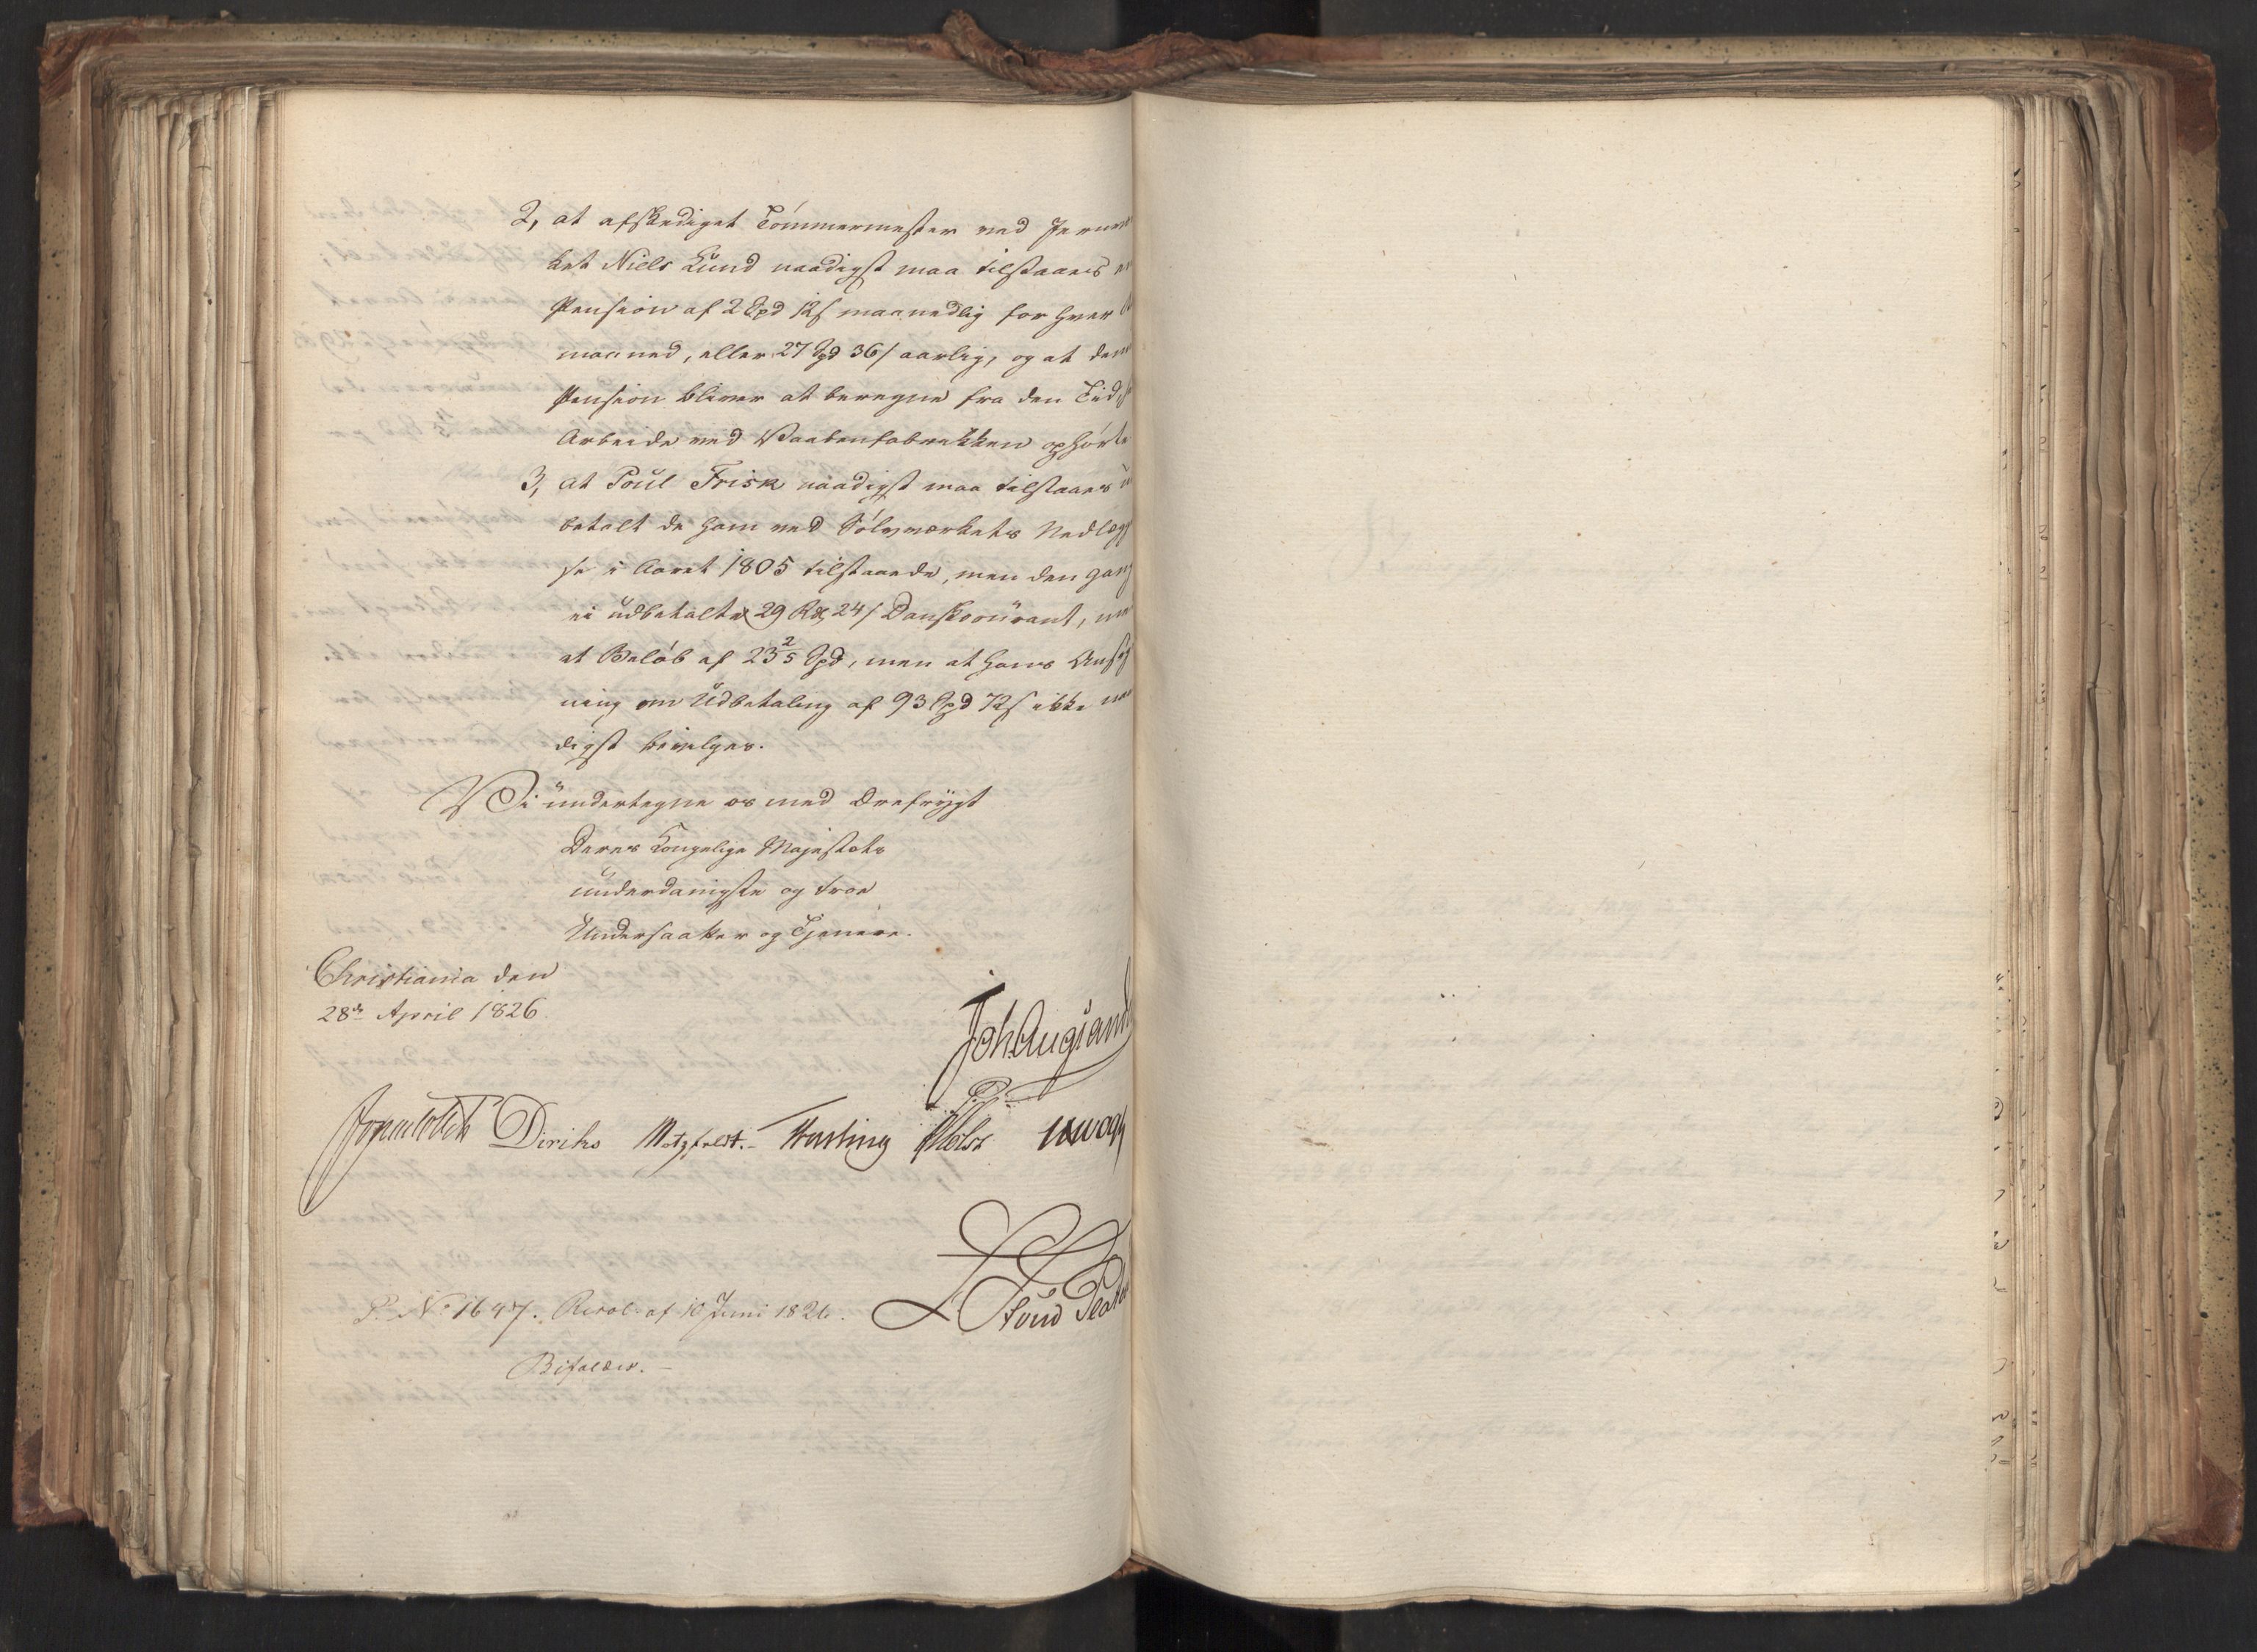 2, at afskediget Tömmermester ved Jernvær
ket Niels Lund naadigst maa tilstaaes en
Pension af 2 Spd 12 s maanedlig for hver
maaned, eller 27 Spd 36 s aarlig, og at denne
Pension bliver at beregne fra den Tid,
Arbeide ved Vaabenfabrikken ophörte
3, at Poul Frisk naadigst maa tilstaaes u
betalt de ham ved Sölvværkets Nedlæg
se i Aaret 1805 tilstaaede, men den Gang
ei udbetalte 29 Rd 24 s Danskcourant, 
et Belöb af 23 2/5 Spd, men at hans Ansög
ning om Udbetaling af 93 Spd 72 s ikke naa
digst bevilges.
Vi undertegne os med Ærefrygt
Deres Kongelige Majestæts
underdanigste og troe
Undersaatter og Tjenere.
Christiania den
28de April 1826.
Joh. Aug. Sand
Diriks Motzfeldt. Fasting Holst
P. No 1647. Resol. af 10 Juni 1826.
Bifaldes.